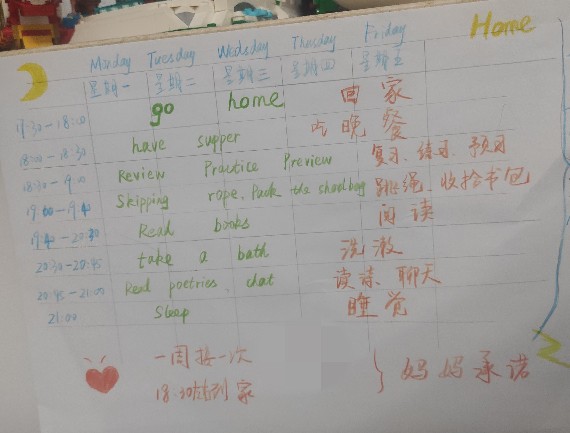 Home
Monday Tuesday Wedsday Thursday Friday
星期一 星期二 星期三 星期四 星期五
17:30-18:00 go home 回家
18:00-18:30 have supper 吃晚餐
18:30-19:00 Review Practice Preview 复习、练习、预习
19:00-19:40 Skipping rope. Pack the shoolbag 跳绳、收拾书包
19:40-20:30 Read books 阅读
20:30-20:45 take a bath 洗澡
20:45-21:00 Read poetries、chat 读诗、聊天
21:00 Sleep 睡觉
一周接一次
18:30 到家
妈妈承诺